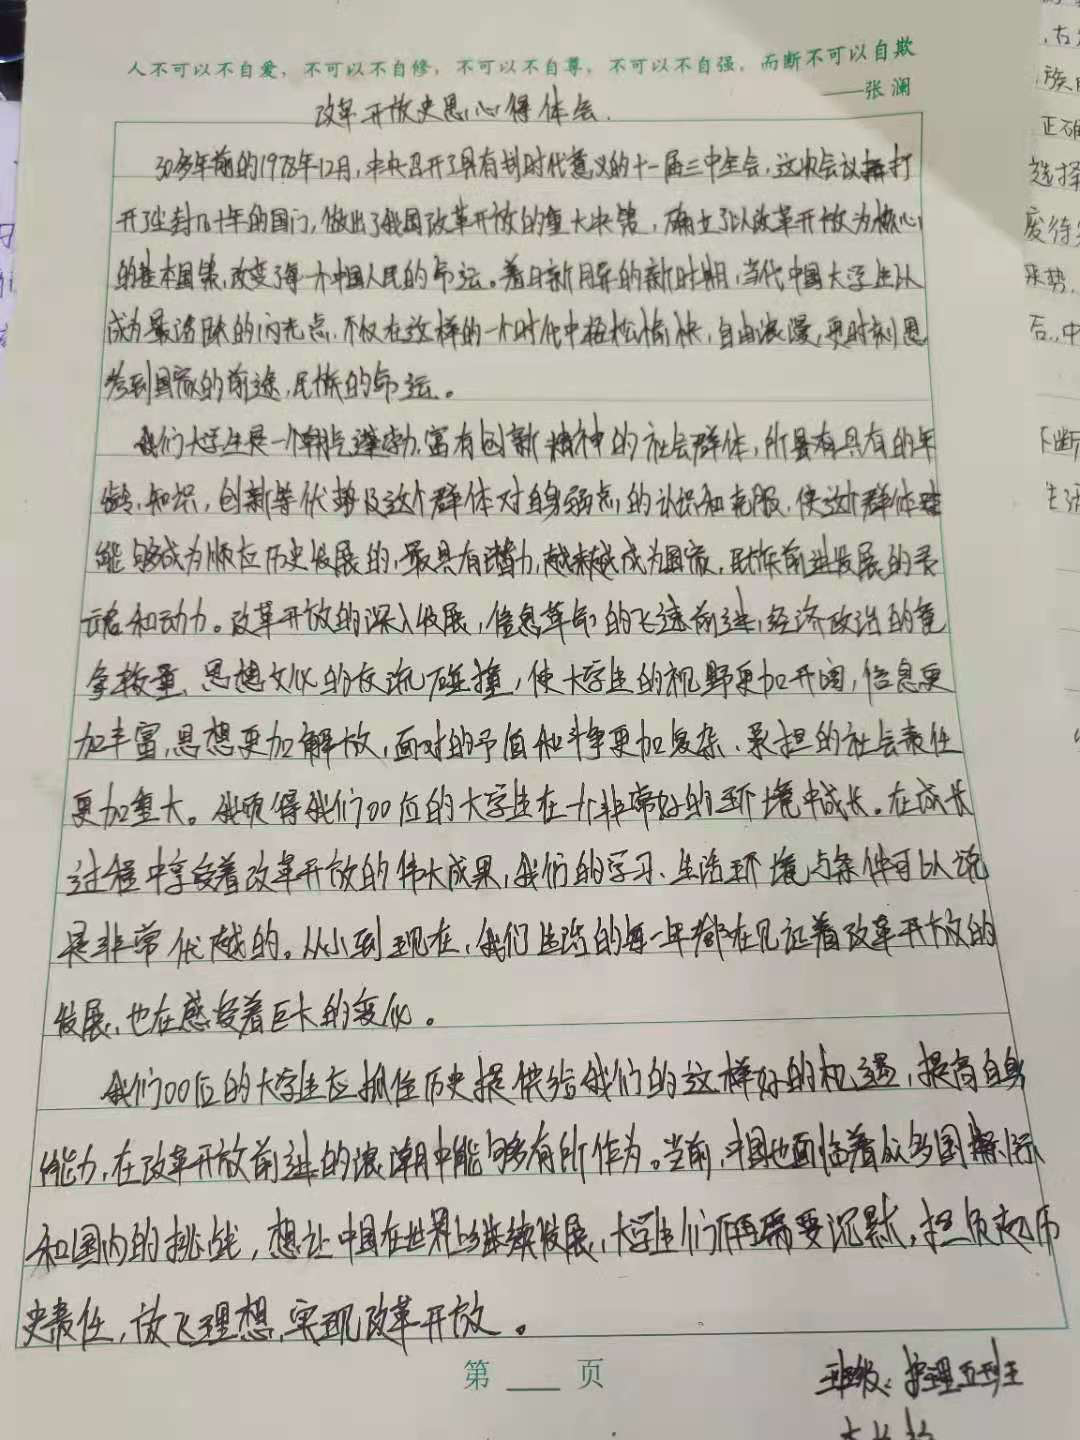 人不可以不自爱，不可以不自修，不可以不自尊，不可以不自强，而断不可以自欺
——张澜
改革开放史思心得体会.
30多年前的1978年12月，中央召开了具有划时代意义的十一届三中全会，这次会议打
开了尘封几十年的国门，做出了我国改革开放的重大决策，确立了以改革开放为核心
的基本国策，改变了每一个中国人民的命运。着日新月异的新时期，当代中国大学生以
成为最诸眯的闪光点，不仅在这样的一个时代中轻松愉快，自由浪漫，更时刻思
考到国家的前途，民族的命运。
我们大学生是一个朝气蓬勃，富有创新精神的社会群体，所具有的年
龄，知识，创新等优势及这个群体对自身弱点的认识和克服，使这个群体
能够成为顺应历史发展的，最具有潜力，越来越成为国家，民族前进发展的灵
魂和动力。改革开放的深入发展，信息革命的飞速前进，经济政治的竞
争较量，思想文化的交流碰撞，使大学生的视野更加开阔，信息更
加丰富，思想更加解放，面对的矛盾和斗争更加复杂、承担的社会责任
更加重大。我觉得我们00位的大学生在一个非常好的环境中成长。在成长
过程中享受着改革开放的伟大成果，我们的学习、生活环境与条件可以说
是非常优越的。从小到现在，我们生活的每一年都在见证着改革开放的
发展，也在感受着巨大的变化。
我们00位的大学生应抓住历史提供给我们的这样好的机遇，提高自身
能力，在改革开放前进的浪潮中能够有所作为。当前，中国也面临着众多国际
和国内的挑战，想让中国在世界上继续发展，大学生们不再需要沉默，担负起历
史责任，放飞理想，实现改革开放。
第 页
班级：护理五班
正确
选择
废待
来势，
后，中
不断